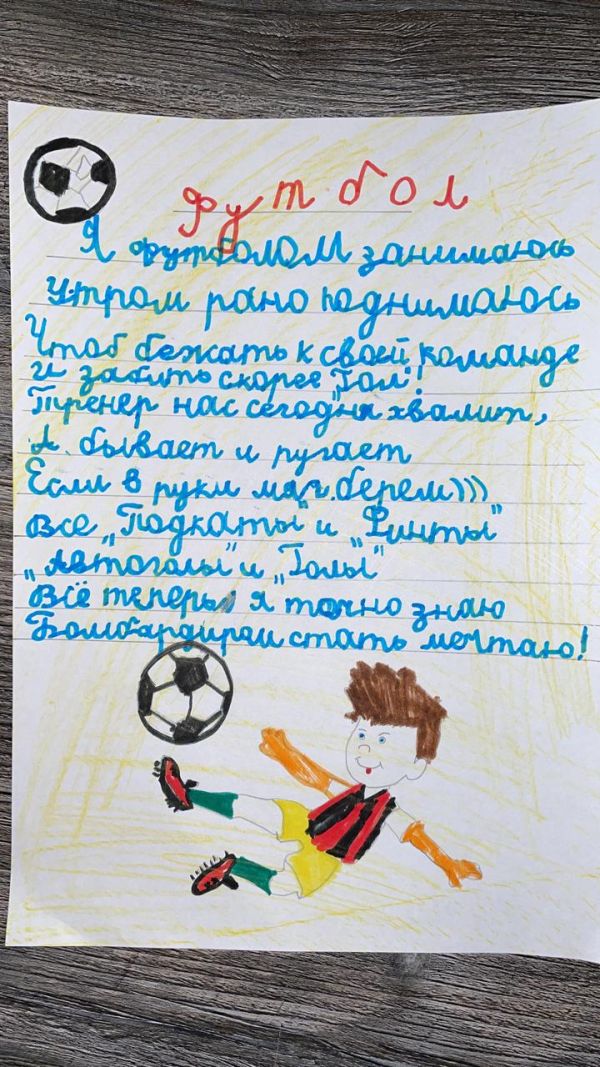 Футбол
Я футболом занимаюсь
Утром рано поднимаюсь
Чтоб бежать к своей команде
и забить скорее "Гол"!
Тренер нас сегодня хвалит,
А бывает и ругает
Если в руки мяч берем)))
Все „Подкаты" и „Финты"
„Автоголы" и „Голы"
Всё теперь я точно знаю
Бомбардиром стать мечтаю!